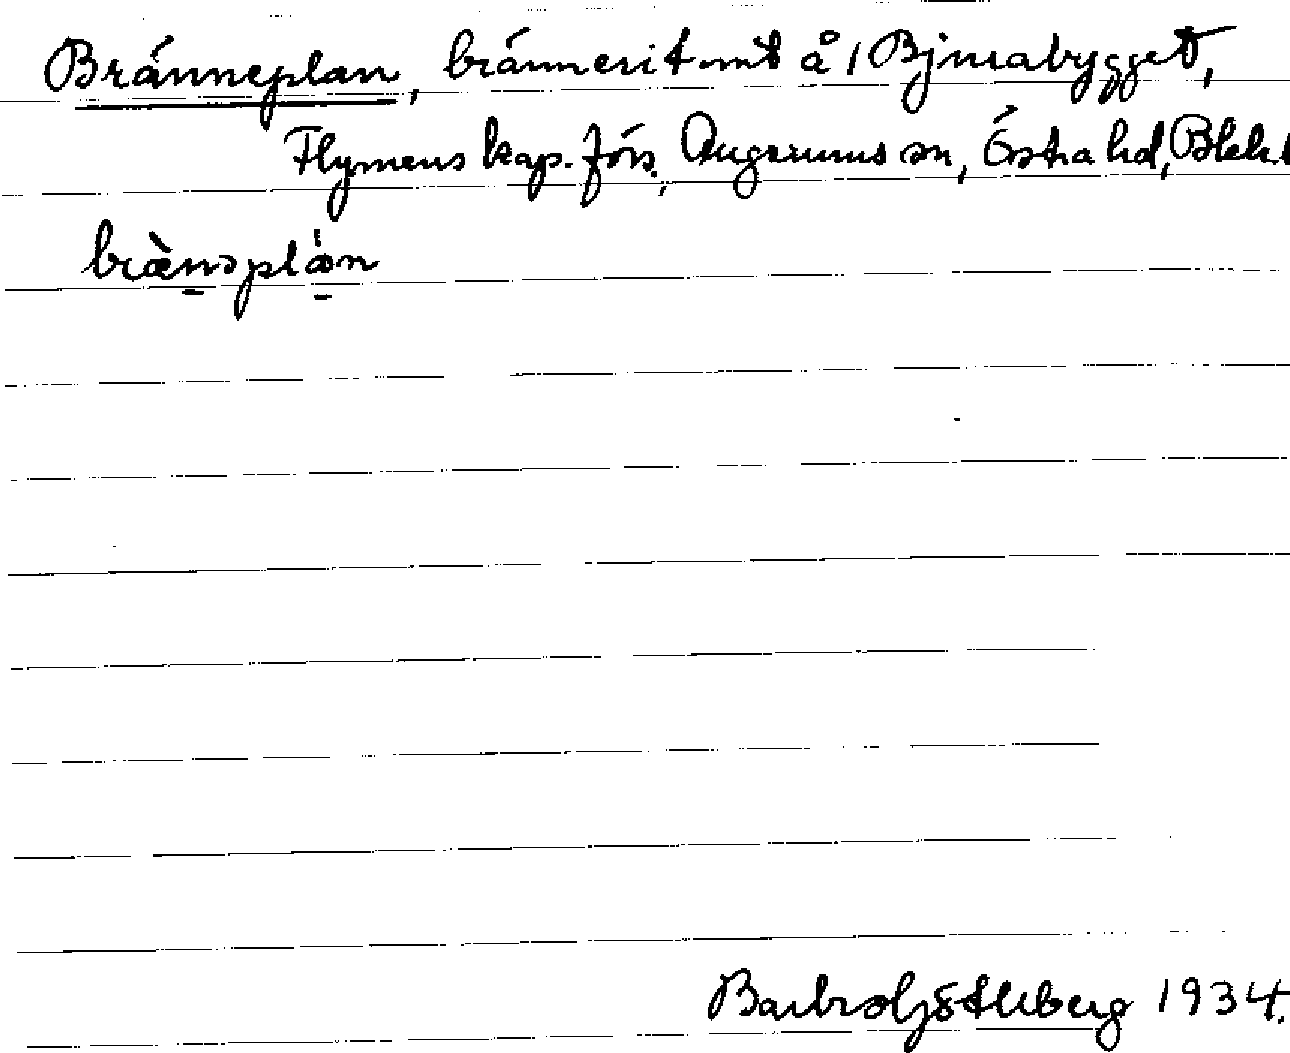 Bränneplan, bränneritomt å 1 Bjurabygget,
Flymens kap. förs., Augerums sn, Östra hd, Blek.
brànəplán
Barbro Söderberg 1934.